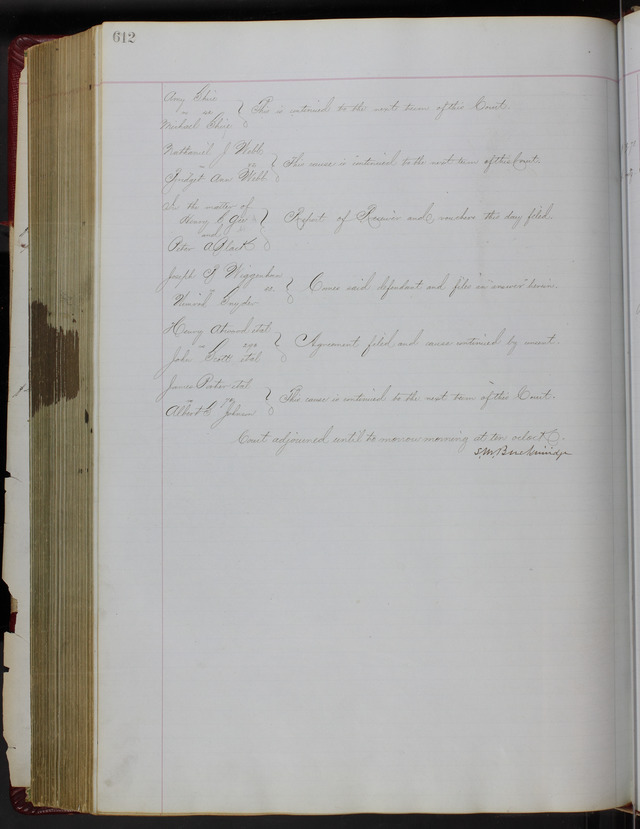 612
Amy Shie
" vs } This is continued to the next term of this Court.
Michael Shie
Nathaniel J Webb
vs } This cause is continued to the next term of this Court.
Bridget Ann Webb
In the matter of
Henry Gee
and } Report of Receiver and vouchers this day filed
Peter A Black
Joseph Wiggenhorn
vs } Comes said defendant and files in answer herein.
Snyder
Henry Atwood et al
vs } Agreement filed, and cause continued by consent.
John Scott et al
James Porter et al
vs } This cause is continued to the next term of this Court.
Albert G Johnson
Court adjourned until to morrow morning at ten oclock.
S. M. Breckinridge